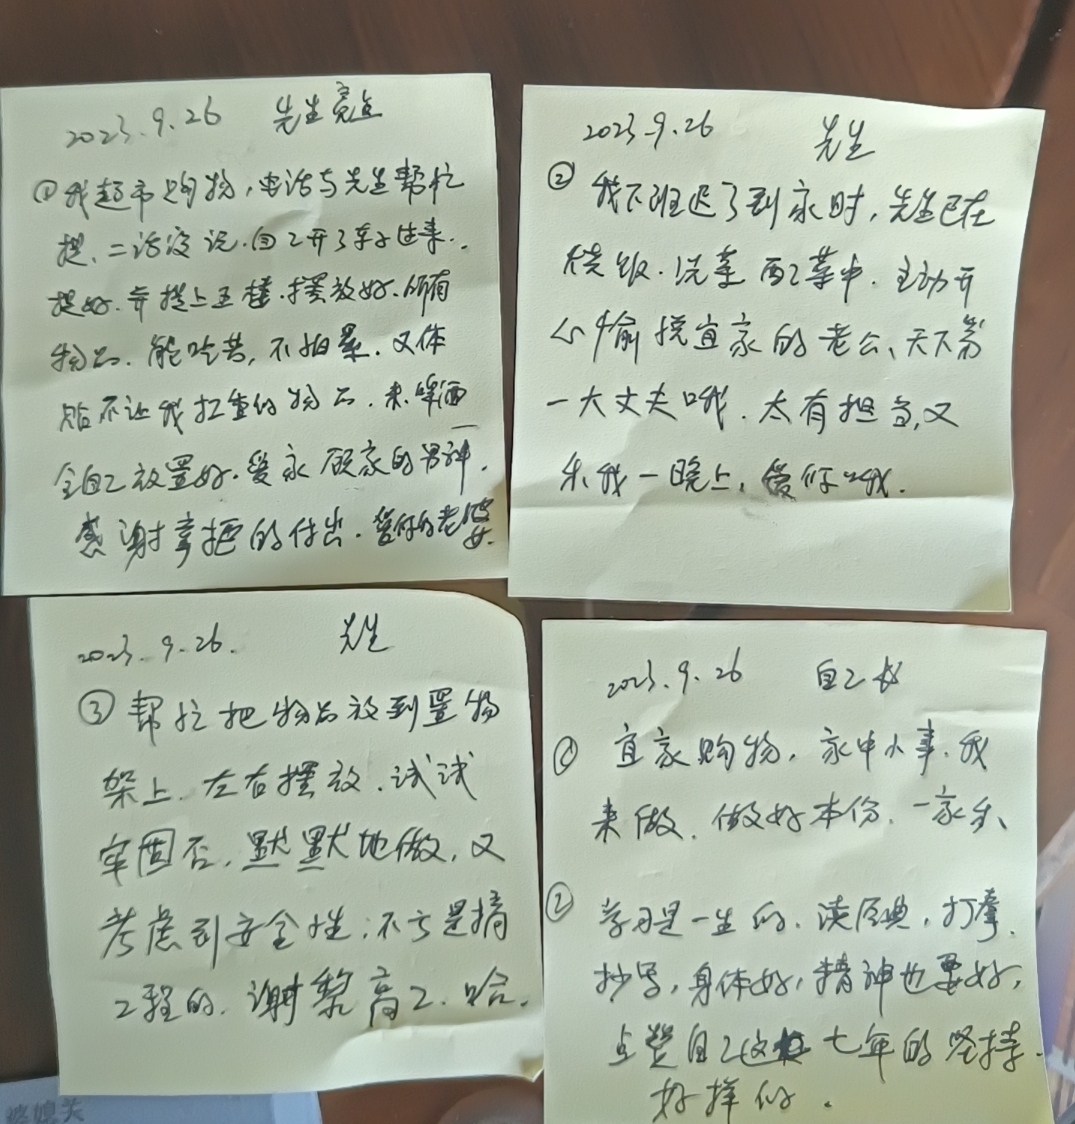 2023.9.26 先生亮点
①我超市购物，电话与先生帮忙
提、二话没说.自己开了车子过来..
提好.并提上五楼.摆放好.所有
物品.能吃苦,不怕累.又体
贴不让我扛重的物品.来.啤酒
全自己放置好.爱家顾家的男神.
感谢幸福的付出.爱你的老婆.
2023.9.26 先生
②我下班迟了到家时,先生已在
烧饭.洗菜 配菜中.主动开
心愉悦宜家的老公、天下第
一大丈夫哦.太有担当,又
乐我一晚上,爱你哦.
2023.9.26. 先生
③帮忙把物品放到置物
架上.左右摆放.试试
牢固否,默默地做,又
考虑到安全性;不亏是搞
工程的.谢黎高工.哈.
2023.9.26 自己
①宜家购物,家中小事.我
来做.做好本份.一家乐、
②学习是一生的.读经典,打拳.
抄写,身体好,精神也要好,
点赞自己这 七年的坚持.
好样的.
婆媳关